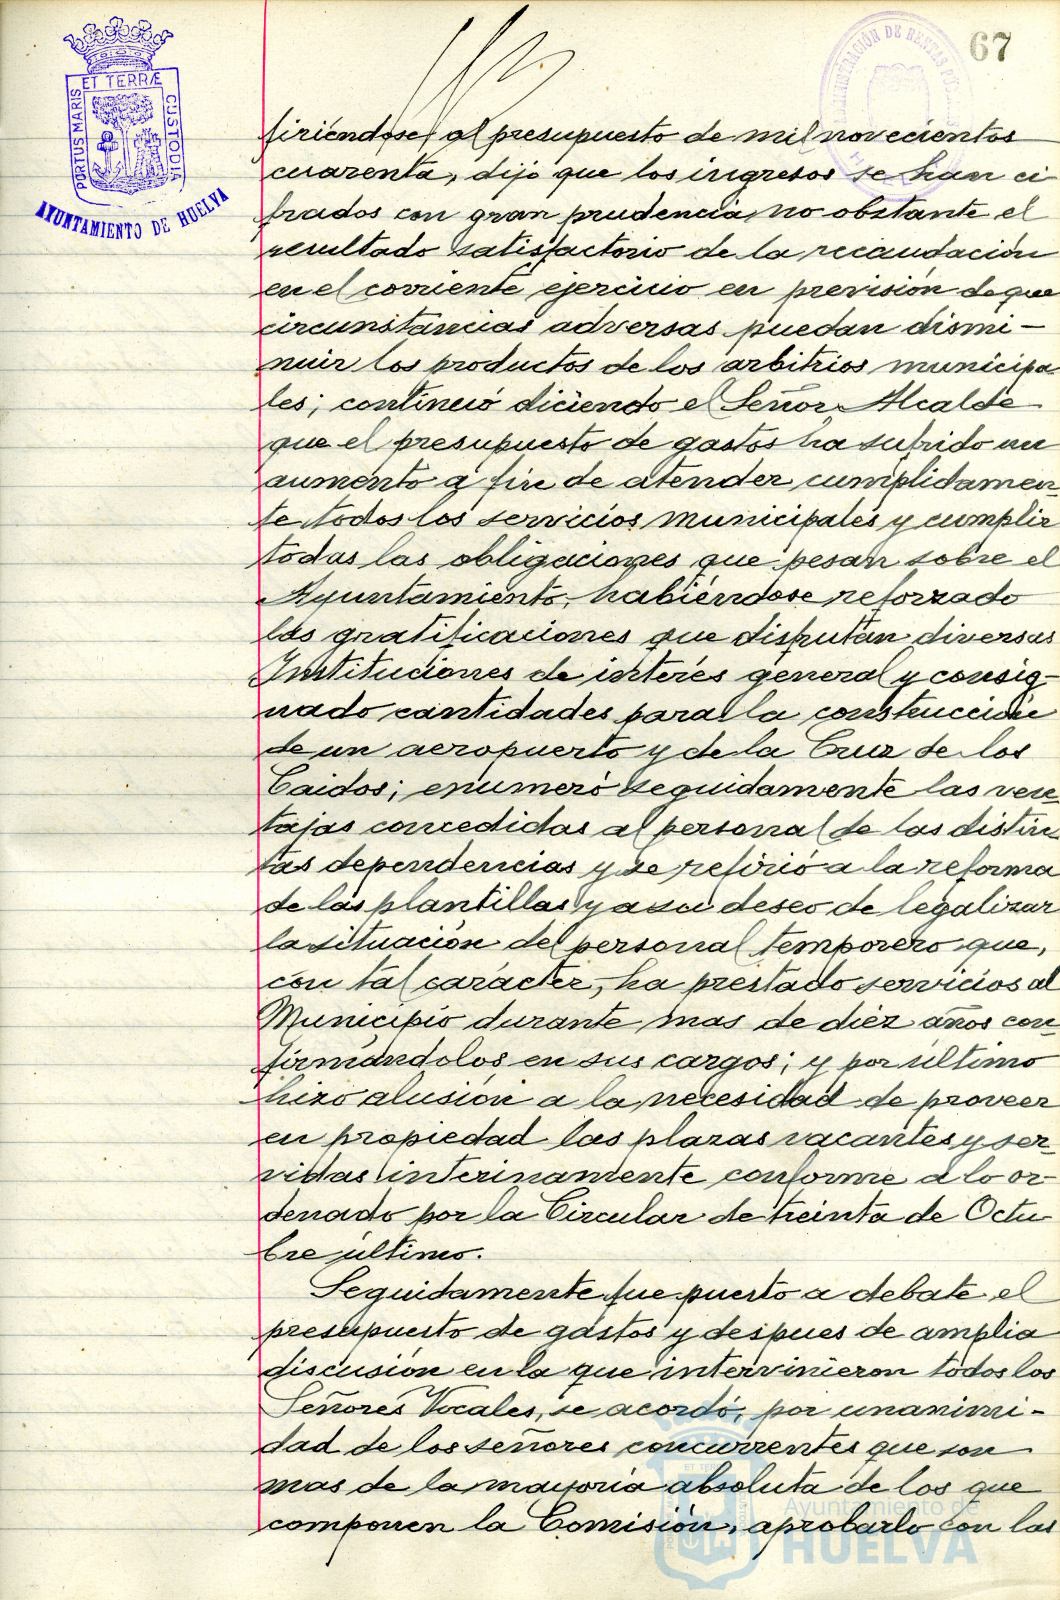 67
PORTUS MARIS ET TERRÆ CUSTODIA
AYUNTAMIENTO DE HUELVA
firiéndose al presupuesto de mil novecientos
cuarenta, dijo que los ingresos se han ci
frados con gran prudencia, no obstante el
resultado satisfactorio de la recaudación
en el corriente ejercicio en previsión de que
circunstancias adversas puedan dismi-
nuir los productos de los arbitrios municipa
les; continuó diciendo el Señor Alcalde
que el presupuesto de gastos ha sufrido un
aumento a fin de atender cumplidamen-
te todos los servicios municipales y cumplir
todas las obligaciones que pesan sobre el
Ayuntamiento, habiéndose reforzado
las gratificaciones que disfrutan diversas
Instituciones de interés general y consig-
nado cantidades para la construcción
de un aeropuerto y de la Cruz de los
Caidos; enumeró seguidamente las ven-
tajas concedidas al personal de las distin-
tas dependencias y se refirió a la reforma
de las plantillas y a su deseo de legalizar
la situación del personal temporero que,
con tal carácter, ha prestado servicios al
Municipio durante mas de diez años con-
firmándolos en sus cargos; y por último
hizo alusión a la necesidad de proveer
en propiedad las plazas vacantes y ser-
vidas interinamente conforme a lo or-
denado por la Circular de treinta de Octu-
bre último.
Seguidamente fue puesto a debate el
presupuesto de gastos y despues de amplia
discusión en la que intervinieron todos los
Señores Vocales, se acordó, por unanimi-
dad de los señores concurrentes que son
mas de la mayoria absoluta de los que
componen la Comisión, aprobarlo con las
Ayuntamiento de
HUELVA